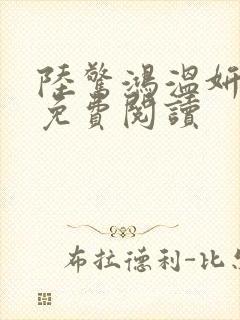 陸驚鴻溫妍
免費閱讀
布拉德利-比